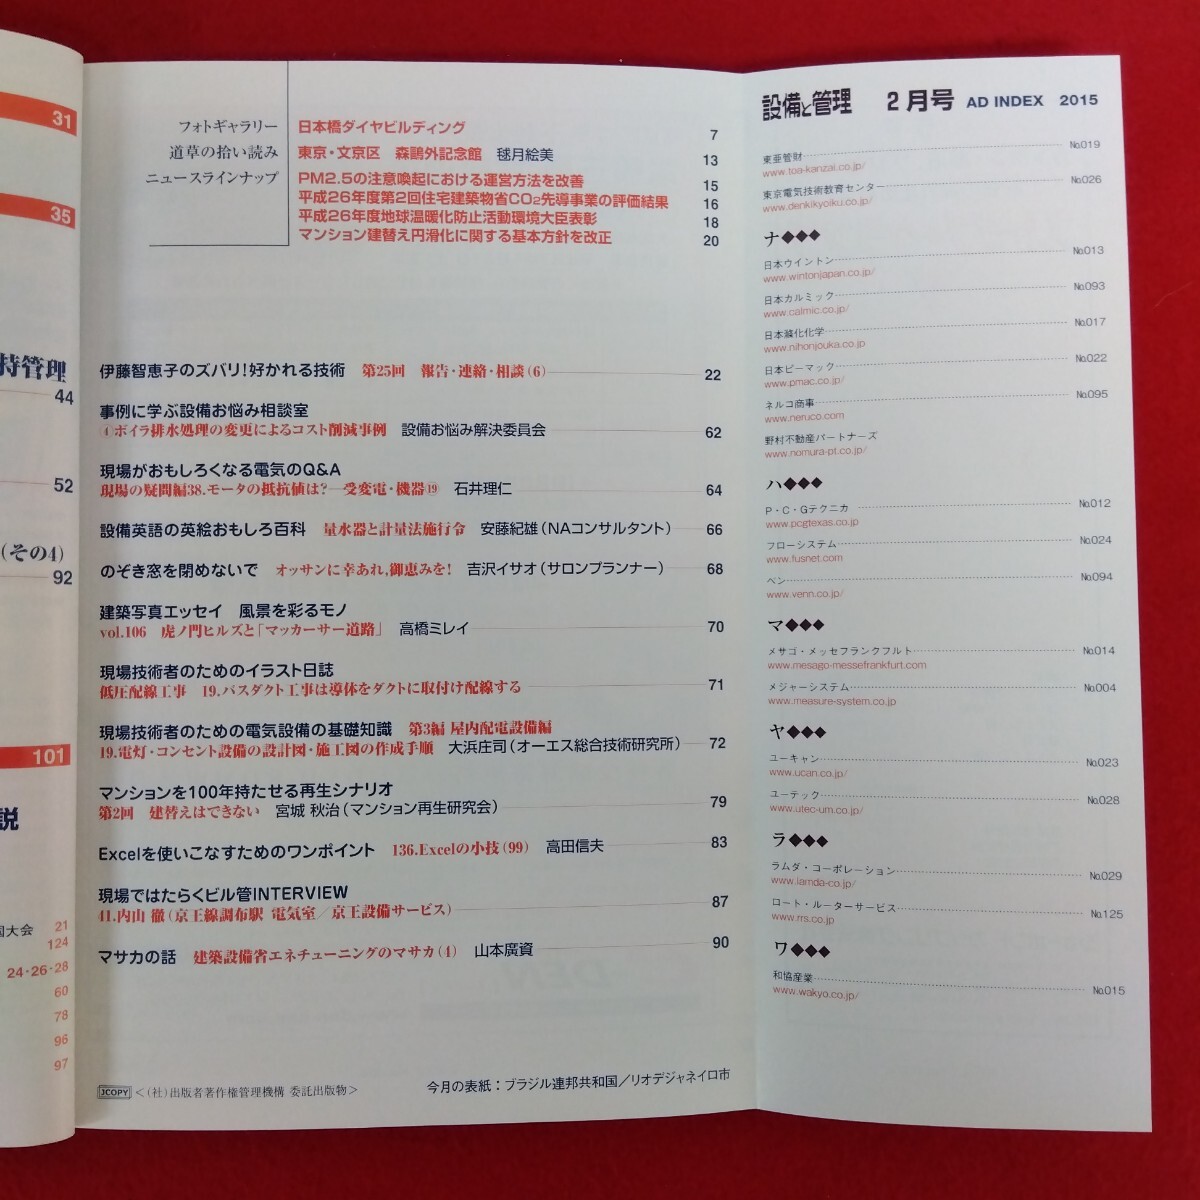 31
35
持管理
44
52
(その4)
92
101
説
国大会 21
124
24・26・28
60
78
96
97
フォトギャラリー 日本橋ダイヤビルディング 7
道草の拾い読み 東京・文京区 森鷗外記念館 毬月絵美 13
ニュースラインナップ PM2.5の注意喚起における運営方法を改善 15
平成26年度第2回住宅建築物省CO2先導事業の評価結果 16
平成26年度地球温暖化防止活動環境大臣表彰 18
マンション建替え円滑化に関する基本方針を改正 20
伊藤智恵子のズバリ!好かれる技術 第25回 報告・連絡・相談(6) 22
事例に学ぶ設備お悩み相談室
④ボイラ排水処理の変更によるコスト削減事例 設備お悩み解決委員会 62
現場がおもしろくなる電気のQ&A
現場の疑問編38.モータの抵抗値は?―受変電・機器⑲ 石井理仁 64
設備英語の英絵おもしろ百科 量水器と計量法施行令 安藤紀雄(NAコンサルタント) 66
のぞき窓を閉めないで オッサンに幸あれ,御恵みを! 吉沢イサオ(サロンプランナー) 68
建築写真エッセイ 風景を彩るモノ
vol.106 虎ノ門ヒルズと「マッカーサー道路」 高橋ミレイ 70
現場技術者のためのイラスト日誌
低圧配線工事 19.バスダクト工事は導体をダクトに取付け配線する 71
現場技術者のための電気設備の基礎知識 第3編 屋内配電設備編
19.電灯・コンセント設備の設計図・施工図の作成手順 大浜庄司(オーエス総合技術研究所) 72
マンションを100年持たせる再生シナリオ
第2回 建替えはできない 宮城 秋治(マンション再生研究会) 79
Excelを使いこなすためのワンポイント 136.Excelの小技(99) 高田信夫 83
現場ではたらくビル管INTERVIEW
41.内山 徹(京王線調布駅 電気室/京王設備サービス) 87
マサカの話 建築設備省エネチューニングのマサカ(4) 山本廣資 90
JCOPY <(社)出版者著作権管理機構 委託出版物>
今月の表紙:ブラジル連邦共和国/リオデジャネイロ市
設備と管理 2月号 AD INDEX 2015
東亜管財 №019
www.toa-kanzai.co.jp/
東京電気技術教育センター №026
www.denkikyoiku.co.jp/
ナ◆◆◆
日本ウイントン №013
www.wintonjapan.co.jp/
日本カルミック №093
www.calmic.co.jp/
日本滌化化学 №017
www.nihonjouka.co.jp
日本ピーマック №022
www.pmac.co.jp/
ネルコ商事 №095
www.neruco.com
野村不動産パートナーズ
www.nomura-pt.co.jp/
ハ◆◆◆
P・C・Gテクニカ №012
www.pcgtexas.co.jp
フローシステム №024
www.fusnet.com
ベン №094
www.venn.co.jp/
マ◆◆◆
メサゴ・メッセフランクフルト №014
www.mesago-messefrankfurt.com
メジャーシステム №004
www.measure-system.co.jp
ヤ◆◆◆
ユーキャン №023
www.ucan.co.jp/
ユーテック №028
www.utec-um.co.jp/
ラ◆◆◆
ラムダ・コーポレーション №029
www.lamda-co.jp/
ロート・ルーターサービス №125
www.rrs.co.jp
ワ◆◆◆
和協産業 №015
www.wakyo.co.jp/